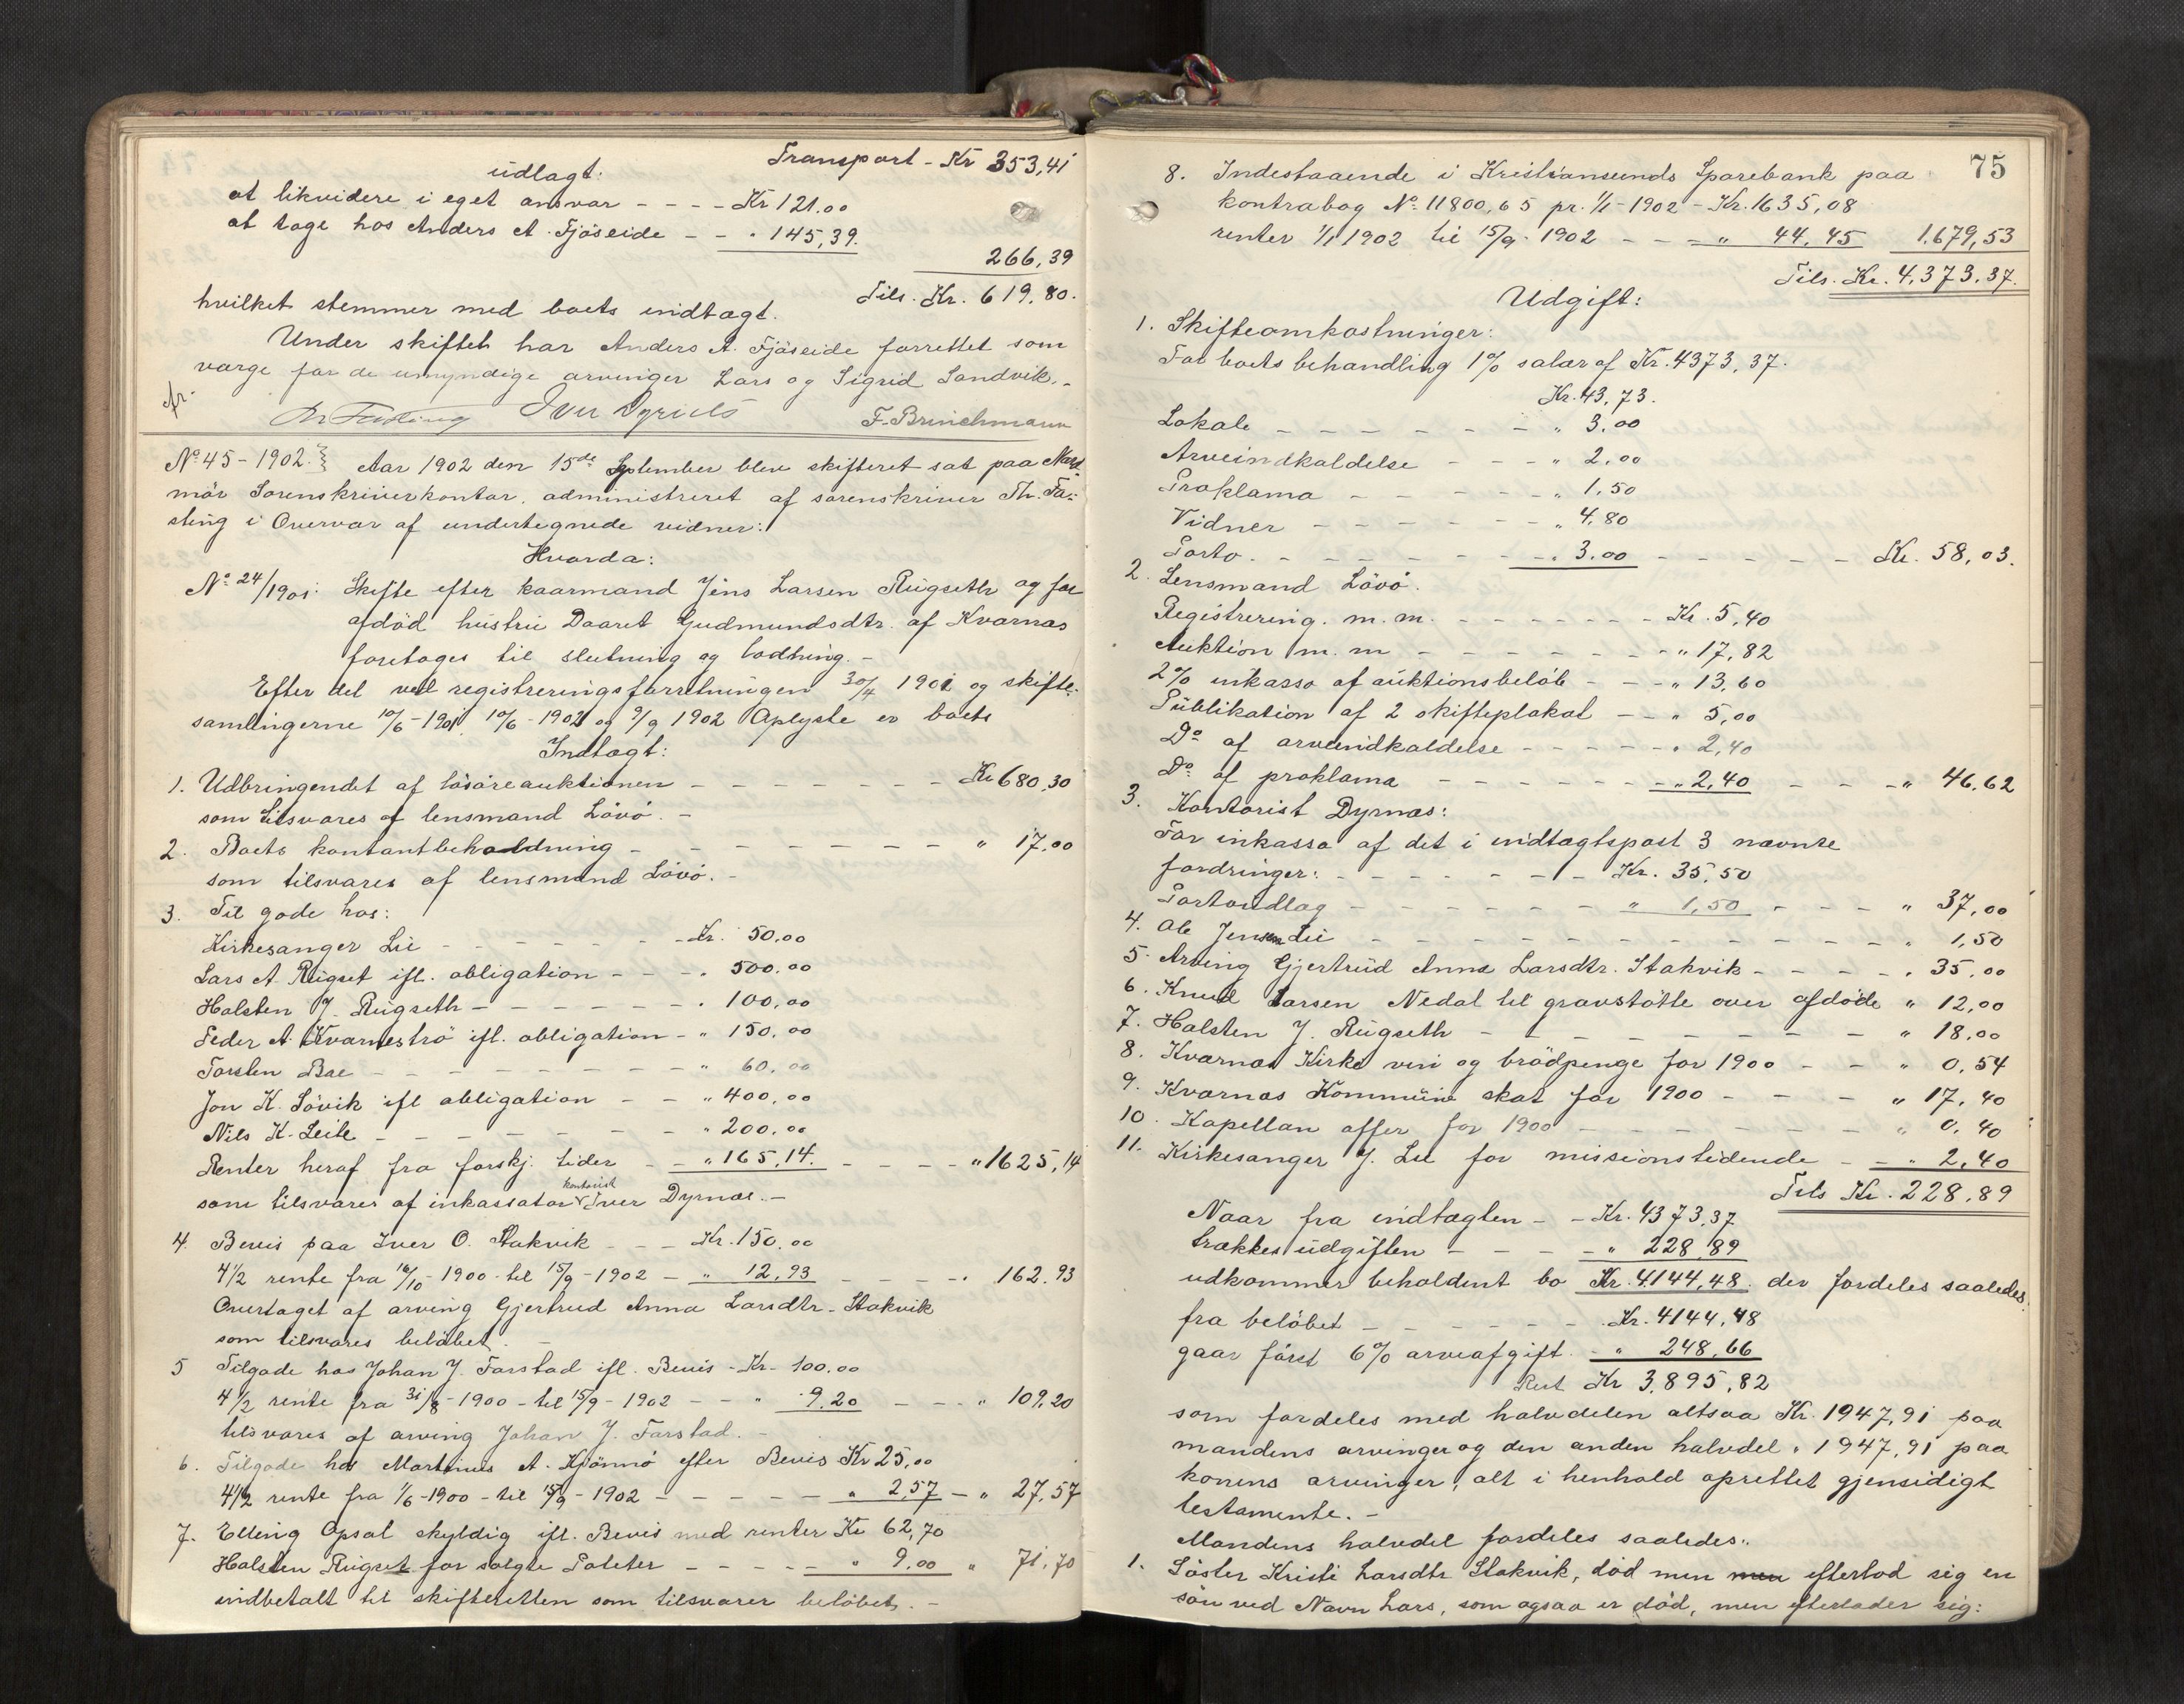 Transport - Kr 353,41
udlagt:
at likvidere i eget ansvar - - - - Kr 121.00
at tage hos Anders A. Fjöseide - - " 145,39.
266,39
Tils. Kr. 619.80.
hvilket stemmer med boets indtægt.
Under skiftet har Anders A. Fjöseide forrettet som
værge for de umyndige arvinger Lars og Sigrid Sandvik. -
Th. Fasting Iver Dyrnes F. Brinchmann
No 45 - 1902. Aar 1902 den 15de September blev skifteret sat paa Nord-
mör Sorenskriverkontor, administreret af sorenskriver Th. Fa-
sting i Overvær af undertegnede vidner:
Hvorda:
No 24/1901. Skifte efter kaarmand Jens Larsen Rügseth og før
afdöd hüstrü Daaret Gudmundsdtr. af Kværnæs
foretoges til slutning og lodning. -
Efter det ved registreringsforretningen 30/4 1901 og skifte-
samlingerne 10/6 - 1901, 10/6 - 1902 og 9/9 1902 Oplyste er boets
Indtægt:
1. Udbringendet af lösöreauktionen - - - - - - - Kr 680,30
som tilsvares af lensmand Lövö. -
2. Boets kontantbeholdning - - - - - - - - " 17.00
som tilsvares af lensmand Lövö. -
3. Til gode hos:
Kirkesanger Lie - - - - - - Kr. 50.00
Lars A. Rügset ifl. obligation - - - . 500.00
Halsten J. Rügseth - - - - - - . 100,00
Peder A. Kvarneströ ifl. obligation - " 150,00
Torsten Bae - - - - - - - - " 60,00
Jon K. Sövik ifl obligation - - " 400,00
Nils K. Leite - - - - - - - " 200.00
Renter heraf fra forskj. tider - - " 165,14. - - - - " 1625,14
som tilsvares af inkassator kontorist Iver Dyrnæs. -
4. Bevis paa Iver O. Stakvik - - - Kr. 150.00
4 1/2 rente fra 16/10 - 1900 - til 15/9 - 1902 - " 12,93 - - - - . 162.93
Overtaget af arving Gjertrud Anna Larsdtr. Stakvik
som tilsvares belöbet. -
5 Tilgode hos Johan J. Farstad ifl. Bevis - Kr - 100.00
4 1/2 rente fra 31/8 - 1900 - til 15/9 - 1902 - - " 9.20 - - - . " 109.20
tilsvares af arving Johan J. Farstad. -
6. Tilgode hos Martinus A. Hjönnö efter Bevis Kr 25,00
4 1/2 rente fra 1/6 - 1900 - til 15/9 - 1902 - - - - - " 2,57 - " 27,57
7. Elling Opsal skyldig ifl. Bevis med renter Kr 62,70
Halsten Rügset for solgte Poteter - - - - - " 9.00 " 71,70
indbetalt til skifteretten som tilsvarer belöbet. -
75
8. Indestaaende i Kristiansunds Sparebank paa
kontrabog No 11800,65 pr. 1/1 - 1902 - Kr. 1635,08
renter 1/1 1902 til 15/9 - 1902 - - - " 44,45 1.679,53
Tils. Kr. 4,373,37.
Udgift:
1. Skifteomkostninger:
For boets behandling 1% salær af Kr. 4373,37.
Kr. 43,73.
Lokale - - - - - - - " 3.00
Arveindkaldelse - - - - " 2,00
Proklama - - - - - - " 1,50
Vidner - - - - - - - " 4,80
Porto. - - - - - - - - " 3.00 - - - - - - Kr. 58,03.
2. Lensmand Lövö.
Registrering. m. m. - - - - - - - Kr. 5,40
Auktion m. m - - - - - - - - " 17,82
2% inkasso af auktionsbelöb - - - " 13,60
Püblikation af 2 skifteplakat - - " 5,00
Do af arveindkaldelse - - - - - . 2,40
Do af proklama - - - - - - - " 2,40 - - - " 46,62
3. Kontorist Dyrnæs:
For inkasso af det i indtægtspost 3 nævnte
fordringer: - - - - - - - Kr. 35,50
Portoudlæg - - - - - - - " 1,50 - - - - " 37,00
4. Ole Jensen Lie - - - - - - - - - - - - - . 1,50
5. Arving Gjertrüd Anna Larsdtr. Stakvik - - - - . 35.00
6. Knud Larsen Nedal til gravstötte over afdöde " 12,00
7. Halsten J. Rügseth - - - - - - - - - " 18.00
8. Kværnæs Kirke vin og brödpenge for 1900 - - " 0,54
9. Kværnæs Kommüne skat for 1900 - - - - " 17,40
10. Kapellan offer for 1900 - - - - - - - - " 0,40
11. Kirkesanger J. Lie for missionstidende - - " 2,40
Tils Kr. 228,89
Naar fra indtægten - - Kr. 4373,37
trækkes üdgiften - - - - " 228,89
udkommer beholdent bo Kr. 4144,48 der fordeles saaledes:
fra belöbet - - - - - - - Kr. 4144,48
gaar först 6% arveafgift. - " 248,66
Rest Kr 3,895,82
som fordeles med halvdelen altsaa Kr. 1947,91 paa
mandens arvinger og den anden halvdel " 1947,91 paa
konens arvinger, alt i henhold oprettet gjensidigt
testamente. -
Mandens halvdel fordeles saaledes:
1. Söster Kristi Larsdtr Stakvik, död men men efterlod sig en
sön ved Navn Lars, som ogsaa er död, men efterlader sig: